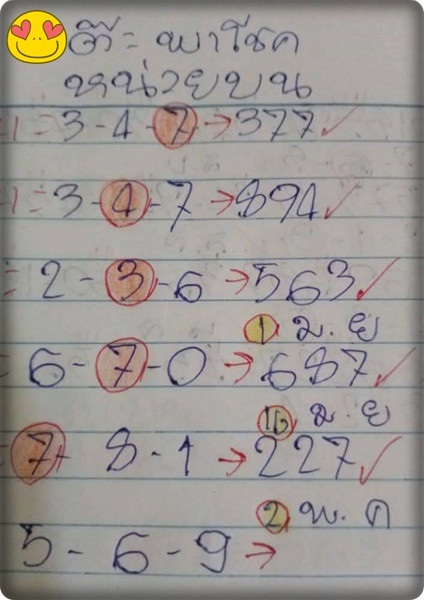 ต๊ะ พาโชค
หน่วยบน
-1 = 3-4-7 → 377 ✓
-1 = 3-4-7 → 894 ✓
= 2-3-6 → 563 ✓
1 ม.ย
= 6-7-0 → 687 ✓
16 ม.ย
7-8-1 → 227 ✓
2 พ.ค
5-6-9 →